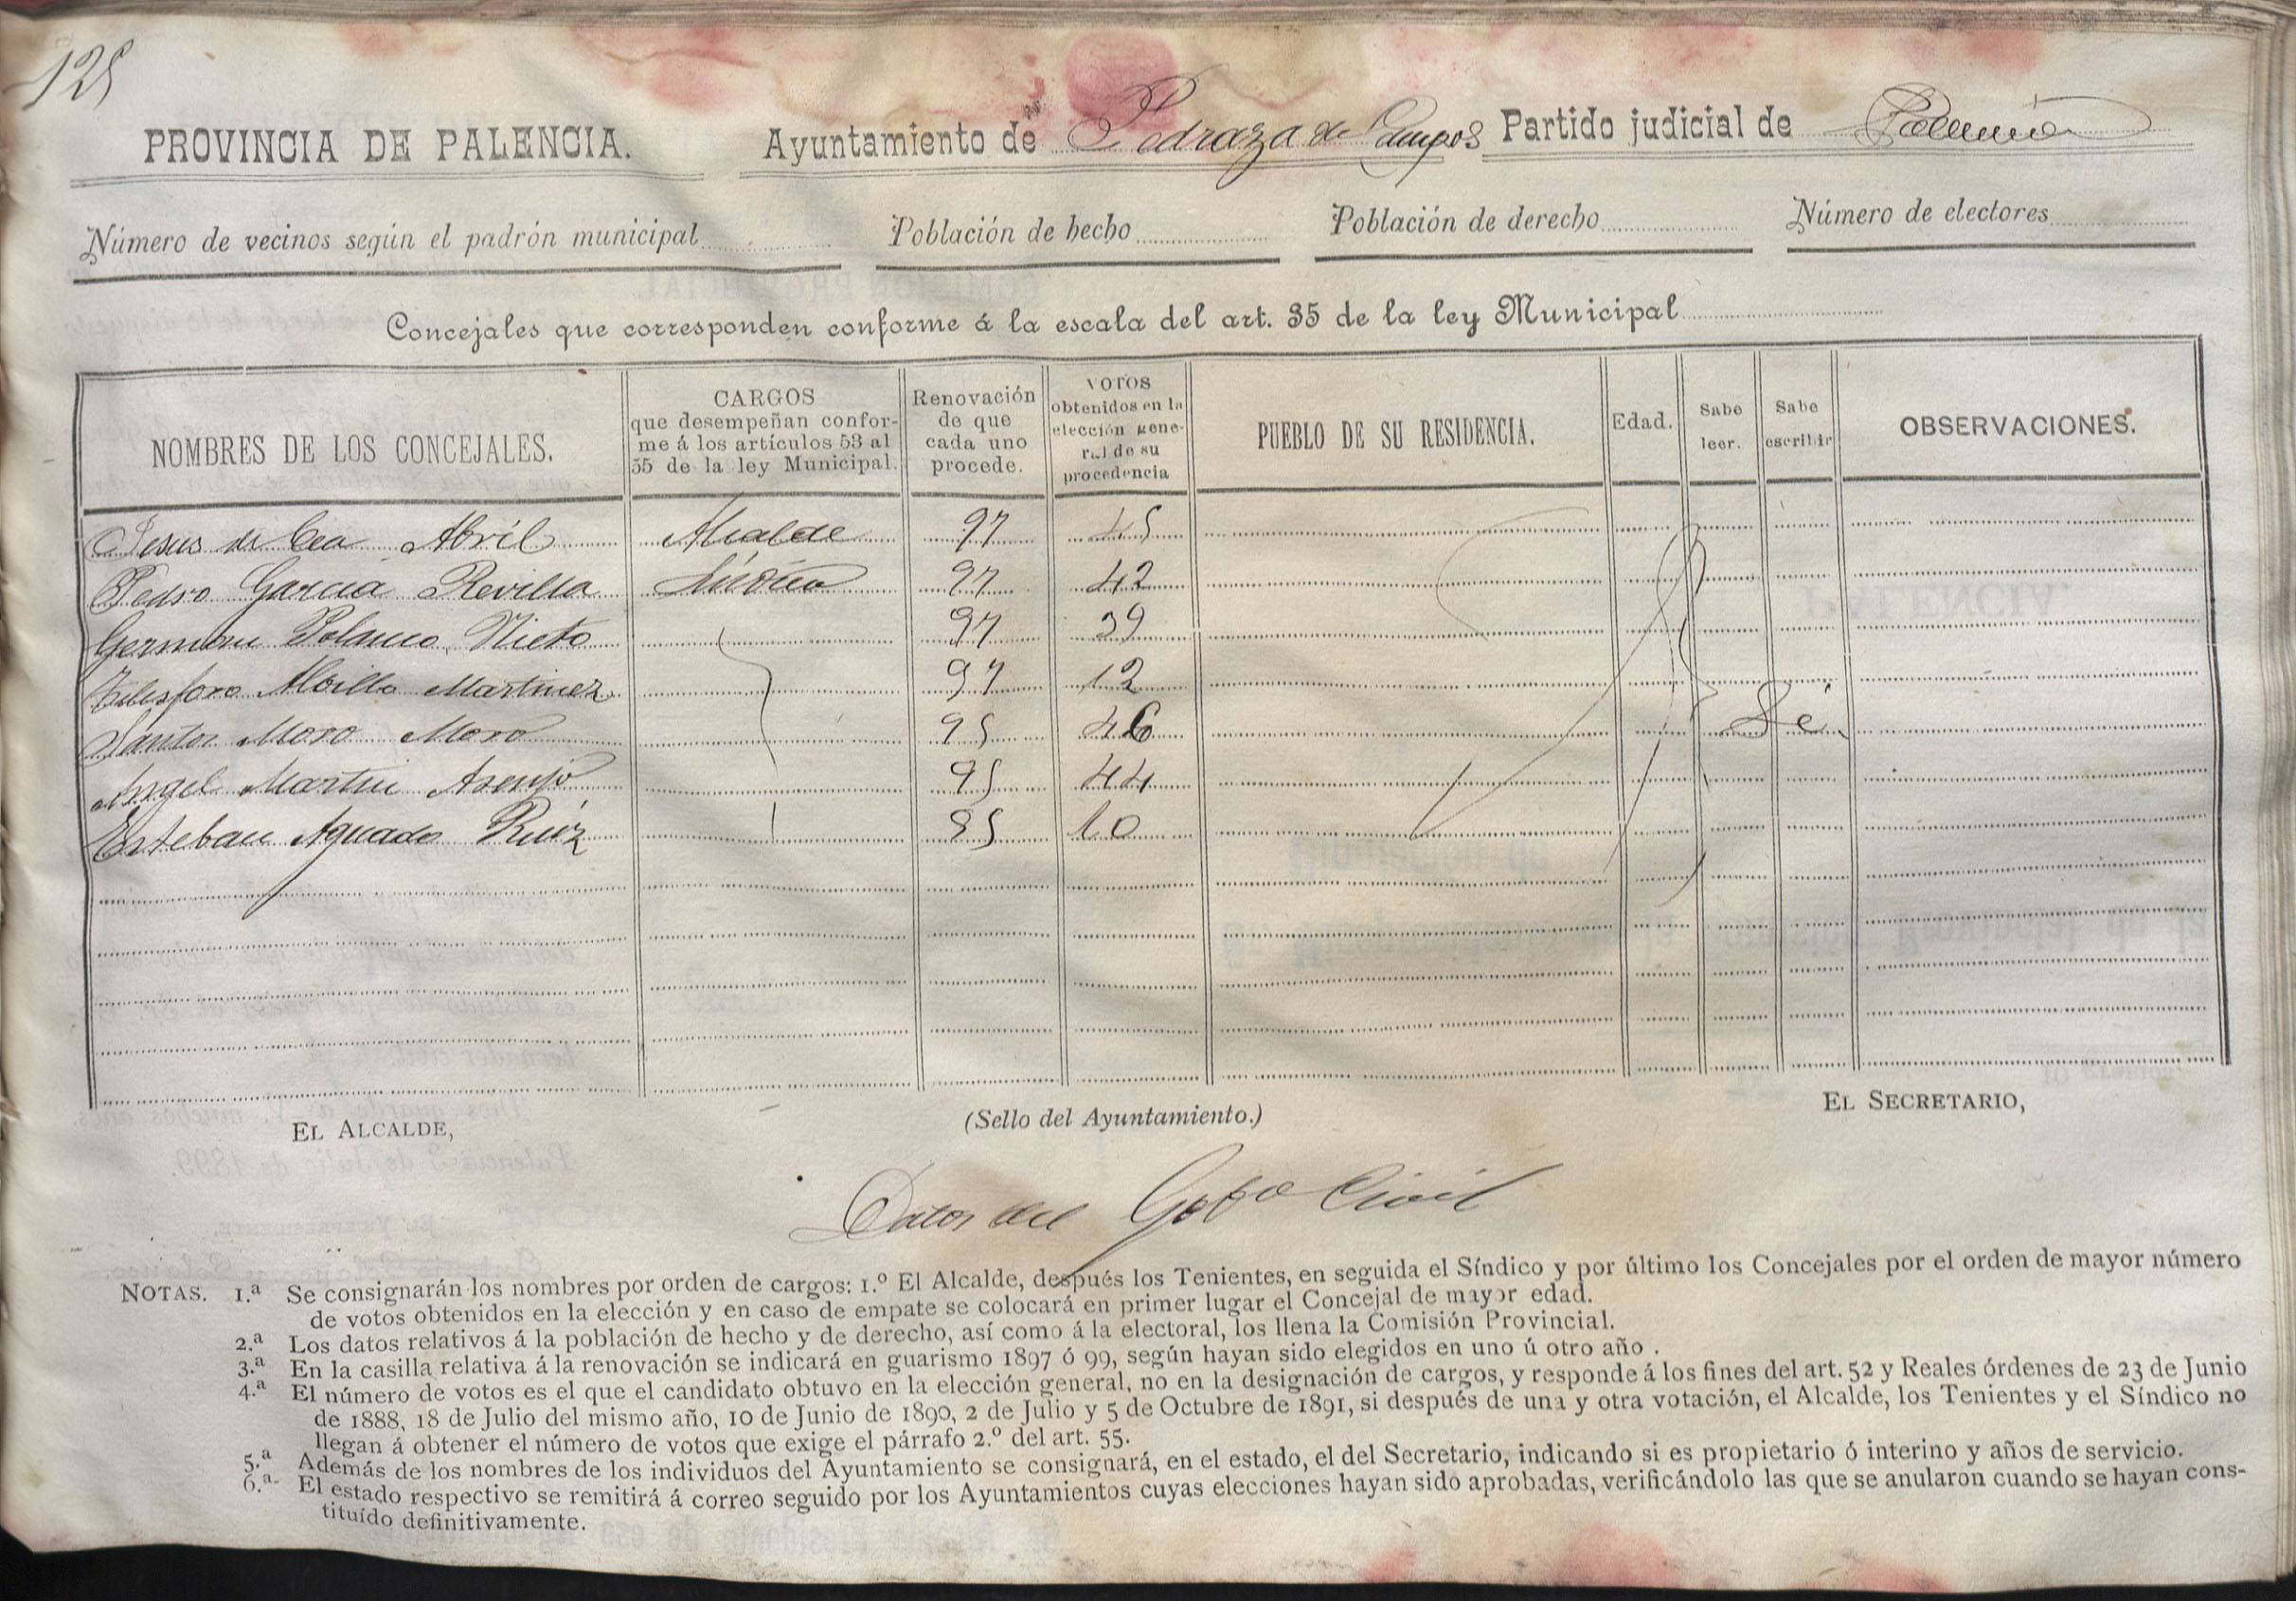 125
PROVINCIA DE PALENCIA. Ayuntamiento de Pedraza de Campos Partido judicial de Palencia
Número de vecinos según el padrón municipal Población de hecho Población de derecho Número de electores
Concejales que corresponden conforme á la escala del art. 35 de la ley Municipal
NOMBRES DE LOS CONCEJALES. CARGOS que desempeñan confor- me á los artículos 53 al 55 de la ley Municipal. Renovación de que cada uno procede. VOTOS obtenidos en la elección gene- ral de su procedencia PUEBLO DE SU RESIDENCIA. Edad. Sabe leer. Sabe escribir OBSERVACIONES.
Jesus de Cea Abril Alcalde 97 45
Pedro Garcia Revilla Síndico 97 42
German Polanco Nieto 97 39
Telesforo Abilla Martinez 97 12
Santos Moro Moro 95 46 Sé
Angel Martin Asenjo 95 44
Esteban Aguado Ruiz 95 10
EL ALCALDE, (Sello del Ayuntamiento.) EL SECRETARIO,
Datos del Gobo Civil
NOTAS. 1.ª Se consignarán los nombres por orden de cargos: 1.º El Alcalde, después los Tenientes, en seguida el Síndico y por último los Concejales por el orden de mayor número
de votos obtenidos en la elección y en caso de empate se colocará en primer lugar el Concejal de mayor edad.
2.ª Los datos relativos á la población de hecho y de derecho, así como á la electoral, los llena la Comisión Provincial.
3.ª En la casilla relativa á la renovación se indicará en guarismo 1897 ó 99, según hayan sido elegidos en uno ú otro año.
4.ª El número de votos es el que el candidato obtuvo en la elección general, no en la designación de cargos, y responde á los fines del art. 52 y Reales órdenes de 23 de Junio
de 1888, 18 de Julio del mismo año, 10 de Junio de 1890, 2 de Julio y 5 de Octubre de 1891, si después de una y otra votación, el Alcalde, los Tenientes y el Síndico no
llegan á obtener el número de votos que exige el párrafo 2.º del art. 55.
5.ª Además de los nombres de los individuos del Ayuntamiento se consignará, en el estado, el del Secretario, indicando si es propietario ó interino y años de servicio.
6.ª El estado respectivo se remitirá á correo seguido por los Ayuntamientos cuyas elecciones hayan sido aprobadas, verificándolo las que se anularon cuando se hayan cons-
tituído definitivamente.